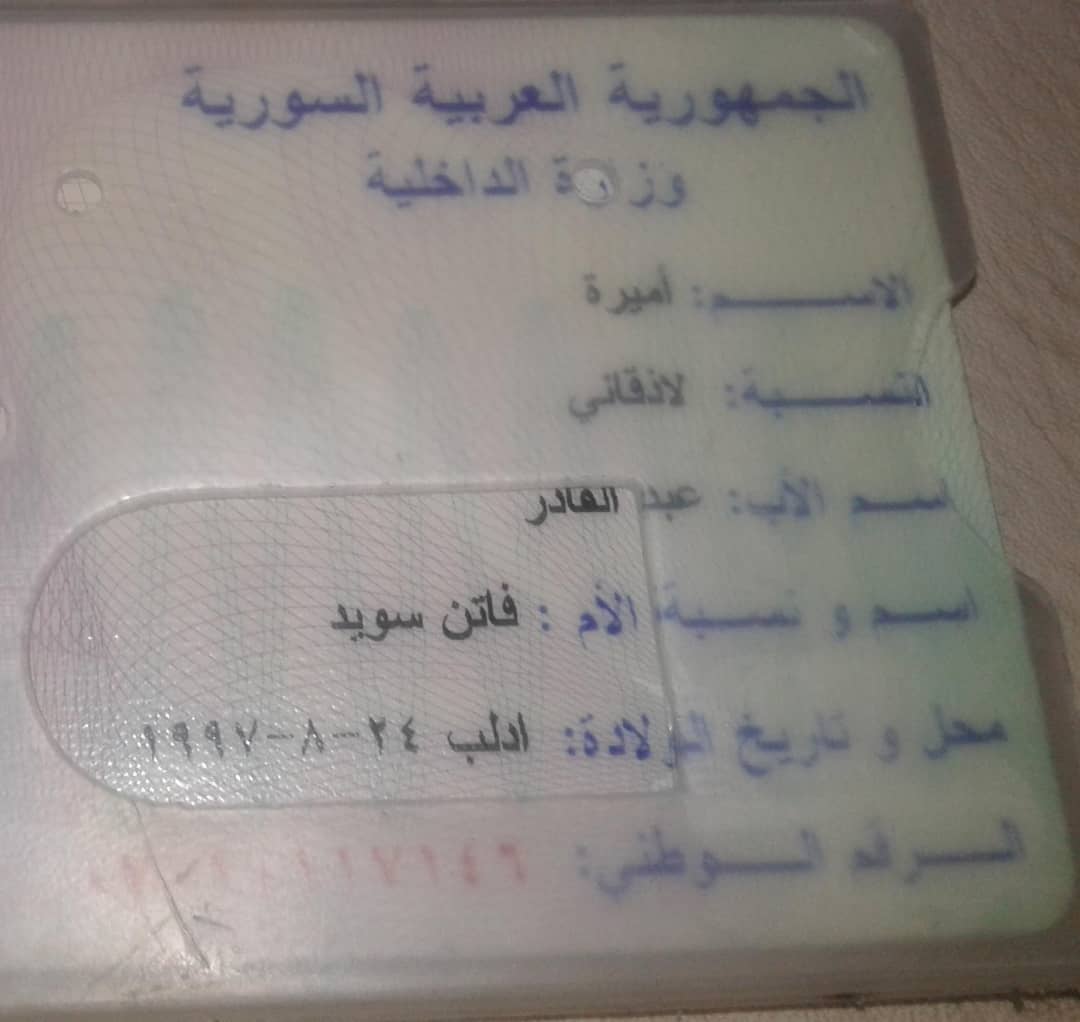 الجمهورية العربية السورية
وزارة الداخلية
الاسم: أميرة
النسبة: لاذقاني
اسم الأب: عبد القادر
اسم و نسبة الأم : فاتن سويد
محل و تاريخ الولادة: ادلب ٢٤-٨-١٩٩٧
الرقم الوطني: